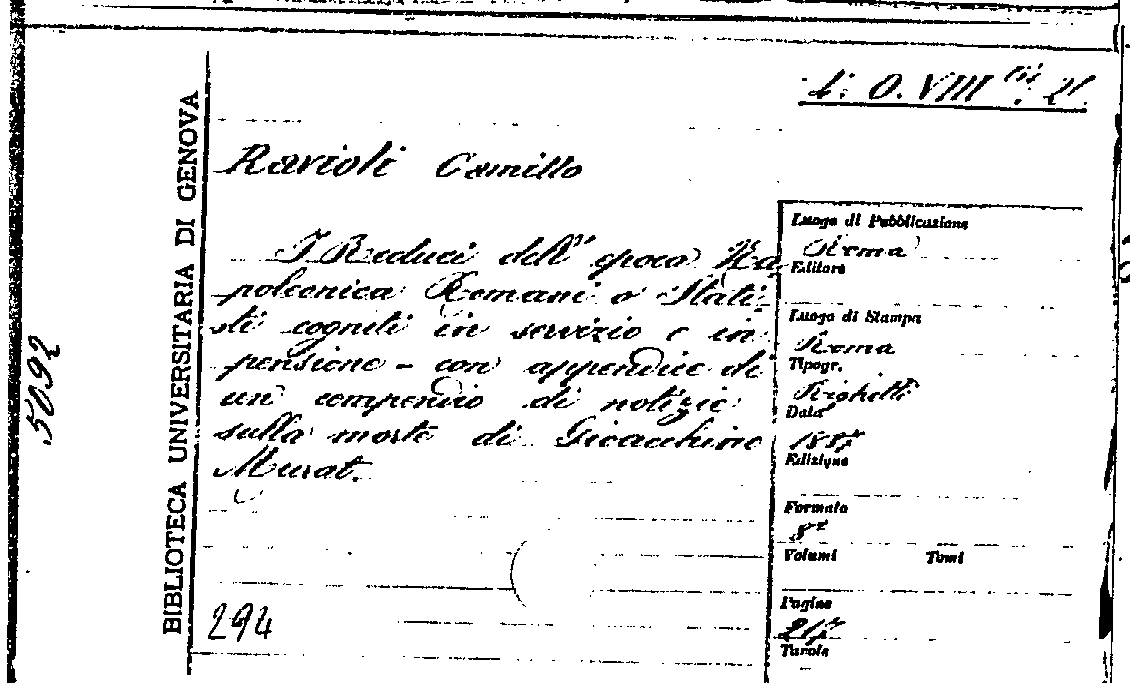 O. VIII. 21.
BIBLIOTECA UNIVERSITARIA DI GENOVA
5092
Ravioli Camillo
I Reduci dell'epoca Na
poleonica Romani o Stati
sti cogniti in servizio e in
pensione - con appendice di
un compendio di notizie
sulla morte di Gioacchino
Murat.
294
Luogo di Pubblicazione
Roma
Editore
Luogo di Stampa
Roma
Tipogr.
Righetti
Data
1887
Edizione
Formato
8º
Volumi Tomi
Pagine
217
Tavole